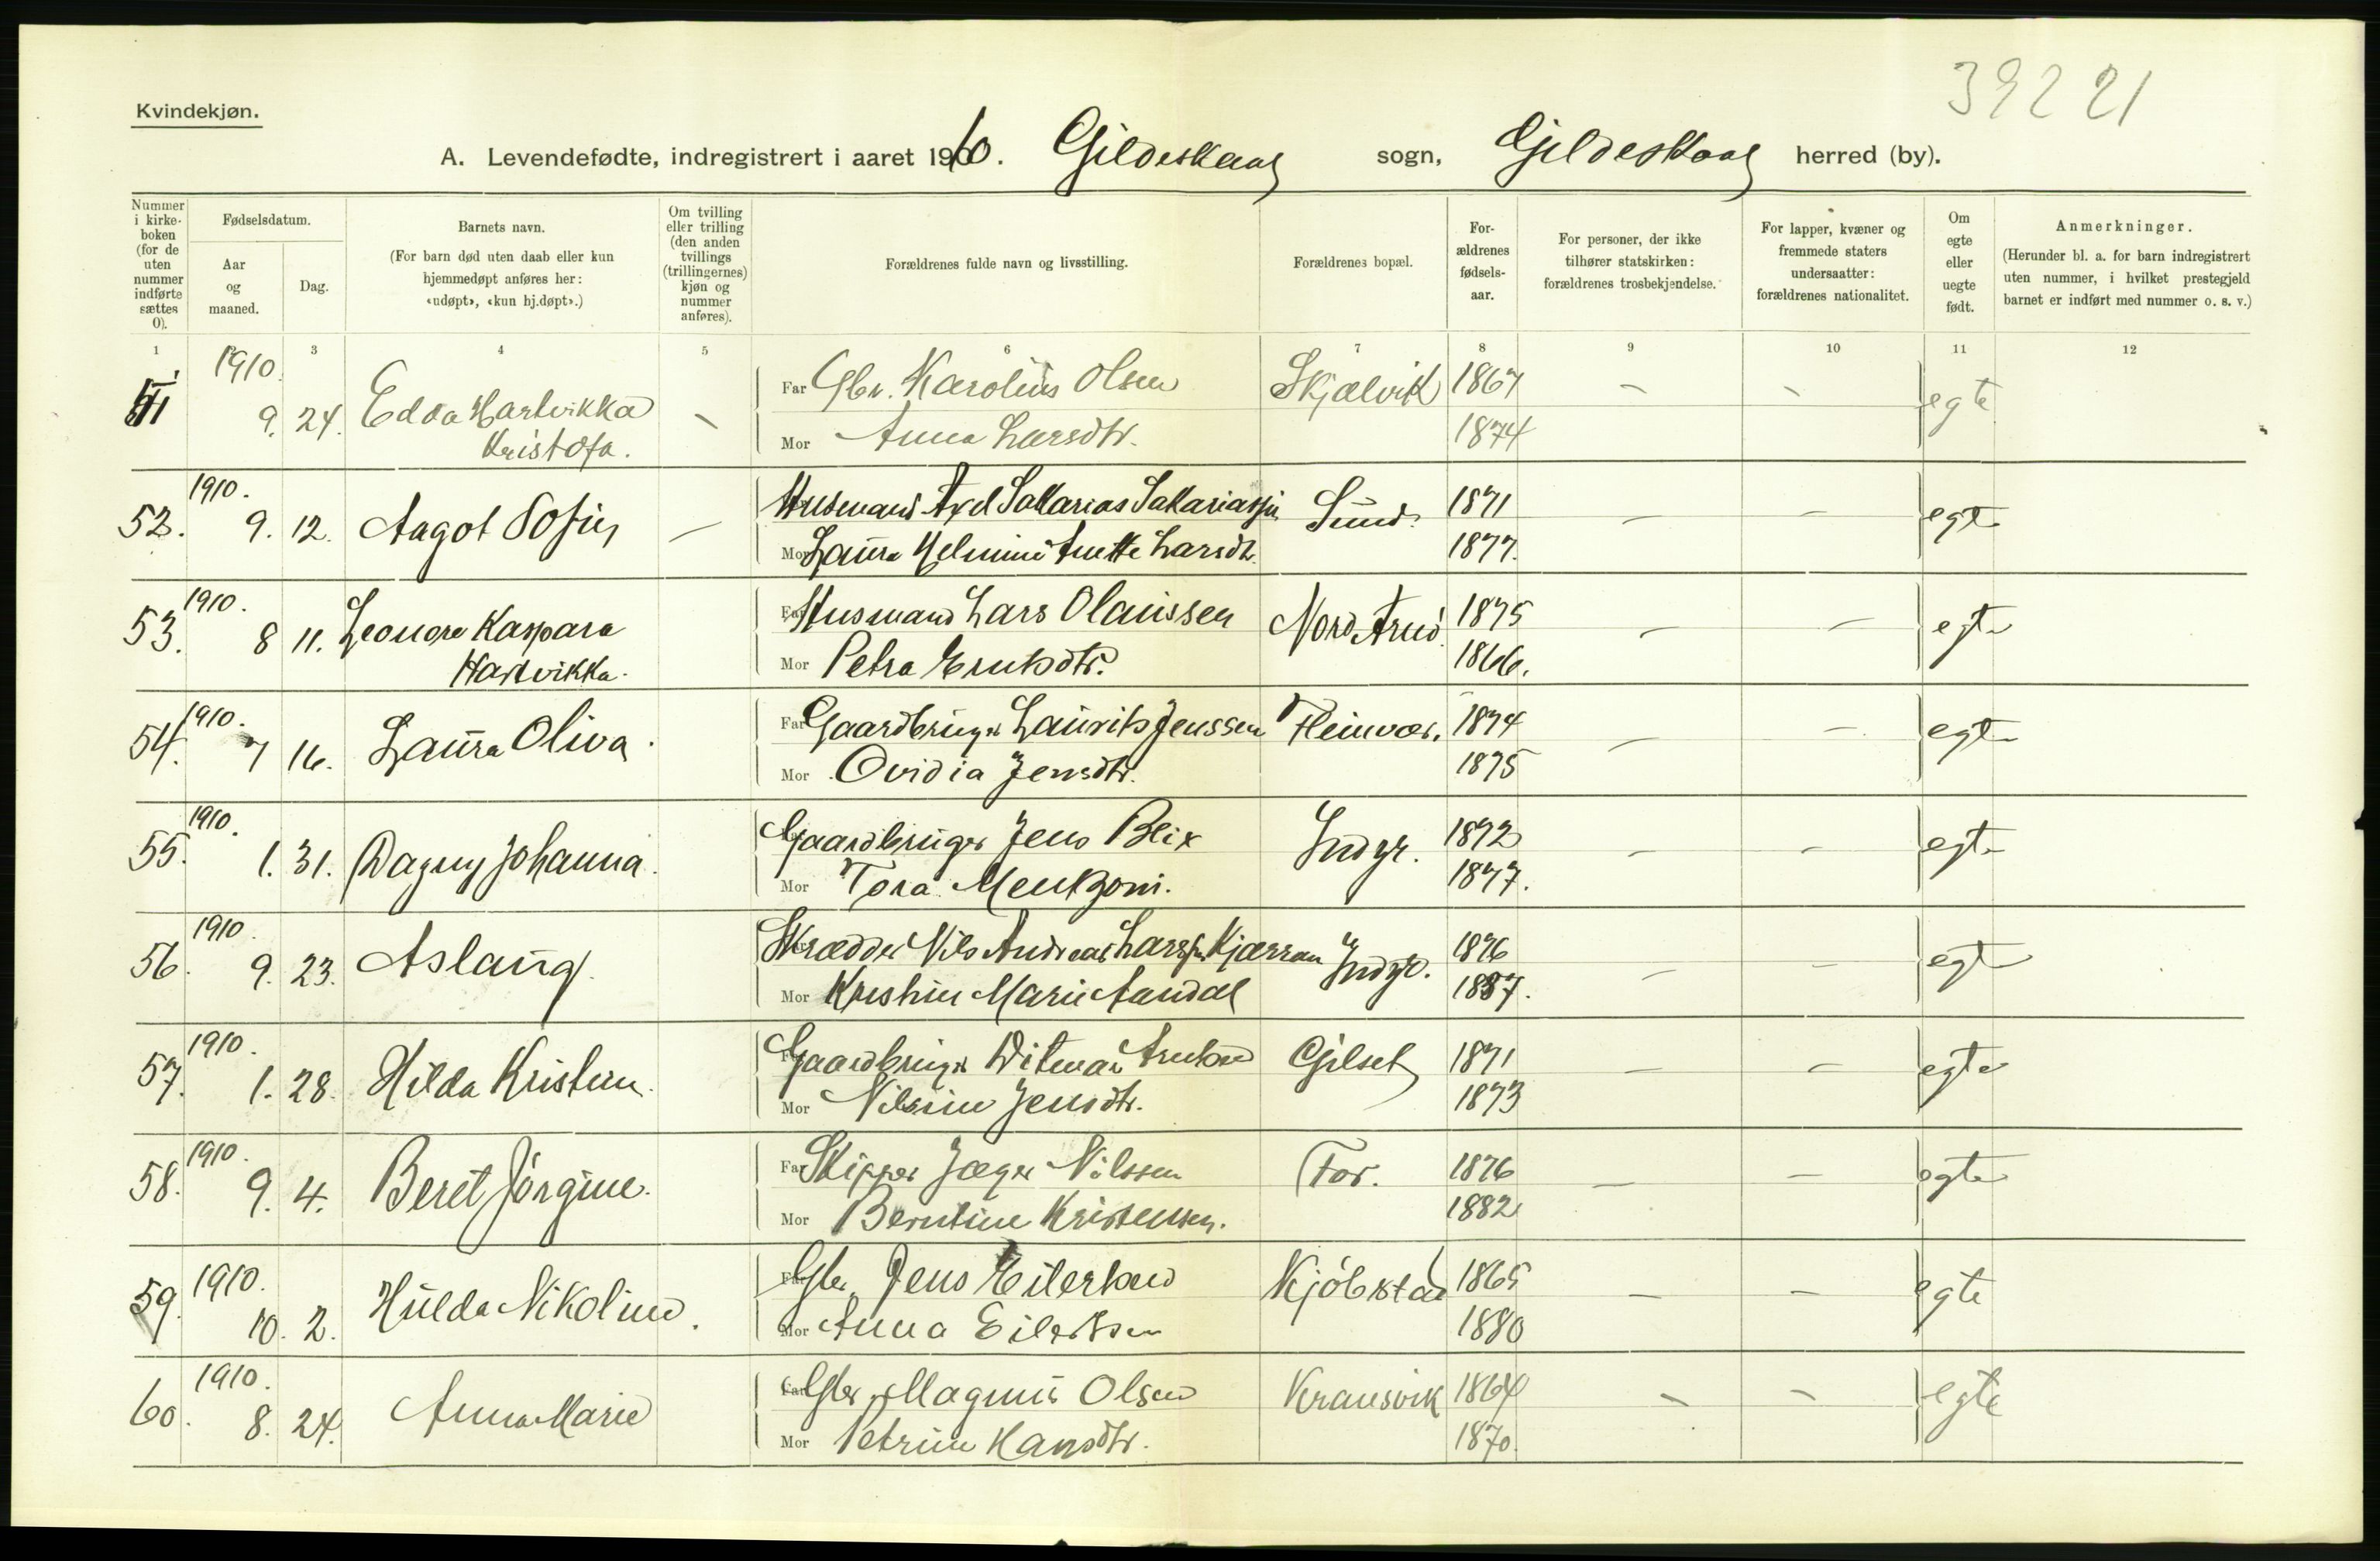 39221
Kvindekjøn.
A. Levendefødte, indregistrert i aaret 1910. Gildeskaal sogn, Gildeskaal herred (by).
Nummer i kirkeboken (for de uten nummer indførte sættes 0).
Fødselsdatum.
Aar og maaned.
Dag.
Barnets navn.
(For barn død uten daab eller kun hjemmedøpt anføres her: «udøpt», «kun hj.døpt».)
Om tvilling eller trilling (den anden tvillings (trillingernes) kjøn og nummer anføres).
Forældrenes fulde navn og livsstilling.
Forældrenes bopæl.
Forældrenes fødselsaar.
For personer, der ikke tilhører statskirken: forældrenes trosbekjendelse.
For lapper, kvæner og fremmede staters undersaatter: forældrenes nationalitet.
Om egte eller uegte født.
Anmerkninger.
(Herunder bl. a. for barn indregistrert uten nummer, i hvilket prestegjeld barnet er indført med nummer o. s. v.)
1 3 4 5 6 7 8 9 10 11 12
51 1910. 9. 24. Edda Hartvikka Kristofa. - Far Gbr. Karolius Olsen Skjælvik 1867 - - egte
Mor Anna Larsdtr. 1874
52. 1910. 9. 12. Aagot Sofie - Husmand Axel Sakarias Sakariassen Sund. 1871 - - egte
Mor Laura Helmine Anette Larsdtr. 1877.
53. 1910. 8 11. Leonora Kaspara Hartvikka. Far Husmand Lars Olaussen Nord Arnø. 1875 - - egte
Mor Petra Eriksdtr. 1866.
54. 1910. 7 16. Laura Oliva. Far Gaardbruger Laurits Jenssen Fleinvær. 1874 - - egte
Mor Ovidia Jensdtr. 1875
55. 1910. 1. 31. Dagny Johanna. Gaardbruger Jens Blix Indyr. 1872 - - egte
Mor Tora Mentzoni. 1877.
56. 1910. 9. 23. Aslaug. Skrædder Nils Andreas Larssen Kjærran Indyr. 1876 - - egte
Mor Kristine Marie Aandal 1887.
57. 1910. 1. 28. Hilda Kristine. Gaardbruger Ditmar Gilset 1871 - - egte
Mor Nilsine Jensdtr. 1873
58. 1910. 9. 4. Beret Jørgine. Far Skipper Jæger Nilssen For. 1876 - - egte
Mor Berntine Kristensen. 1882
59. 1910. 10. 2. Hulda Nikoline. Far Gbr. Jens Eilertsen Kjøbstad 1865 - - egte
Mor Anna Eilertsen 1880
60. 1910. 8. 24. Anna Marie Far Gbr. Magnus Olsen Kransvik 1864 - - egte
Mor Petrine Hansdtr. 1870.